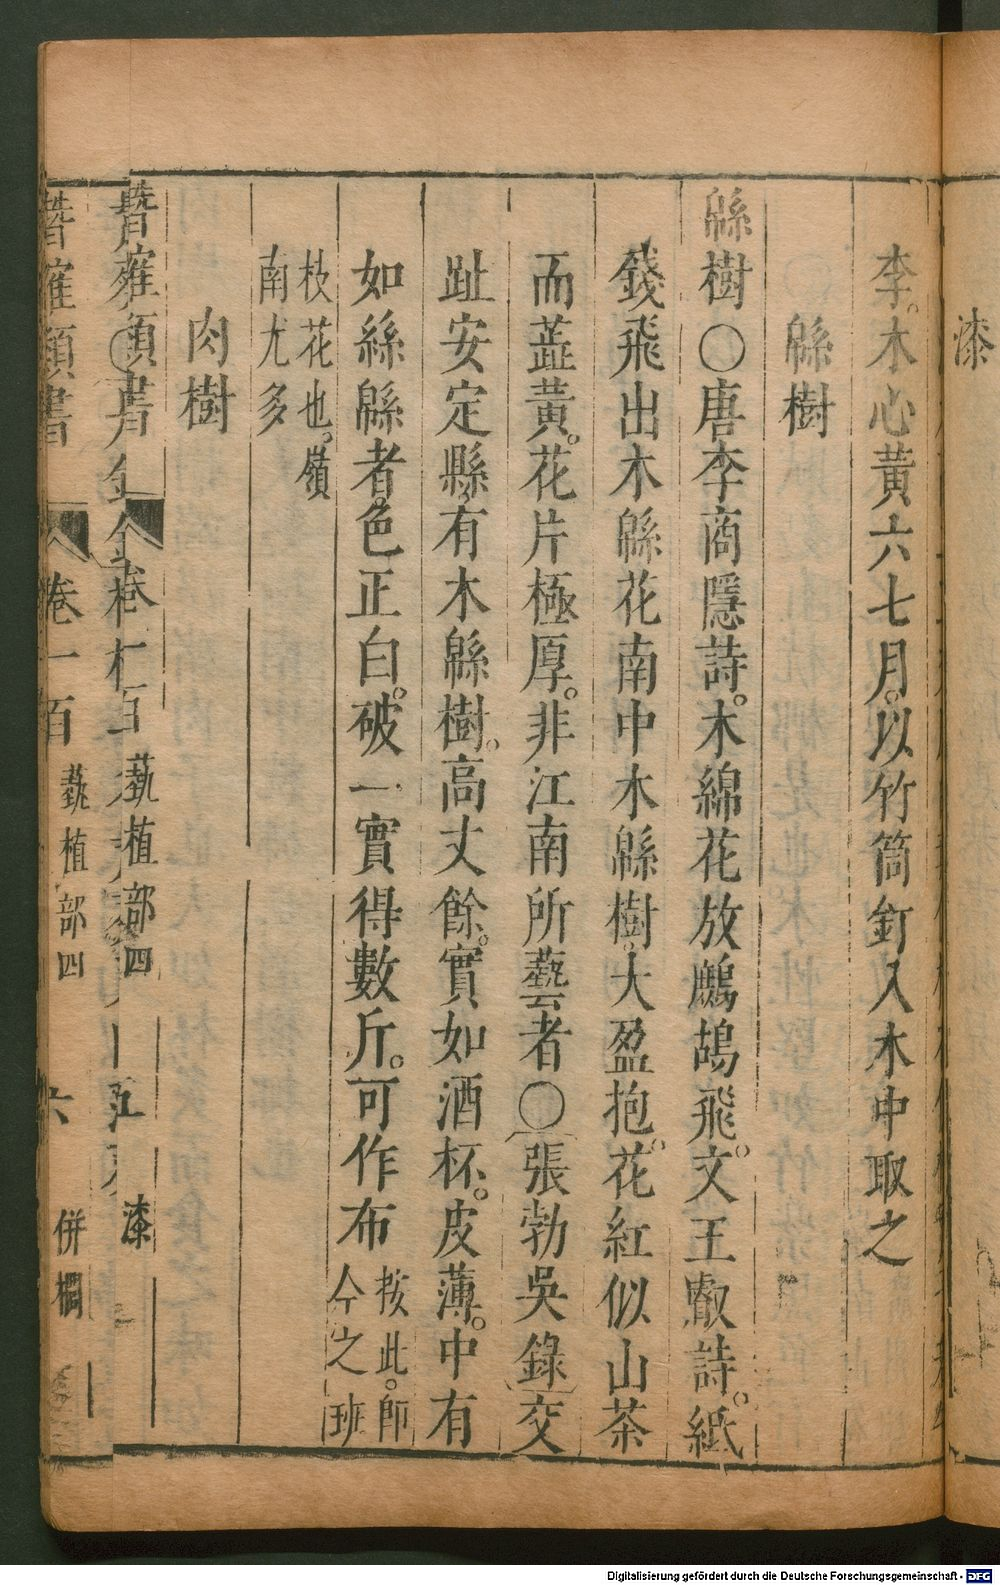 漆
李。木心黃六七月。以竹筒釘入木中取之
緜樹
緜樹〇唐李商隱詩。木綿花放鷓鴣飛。文王叡詩。紙
錢飛出木緜花南中木緜樹。大盈抱。花紅似山茶
而蕋黃。花片極厚。非江南所藝者〇張勃吳錄交
趾安定縣有木緜樹。高丈餘。實如酒杯。皮薄。中有
如絲緜者。色正白。破一實得數斤。可作布
按此。卽
今之班
枝花也。嶺
南尤多
肉樹
卷
百
蓺植部四
五
漆
卷一百
蓺植部四
六
併櫚
Digitalisierung gefördert durch die Deutsche Forschungsgemeinschaft - DFG